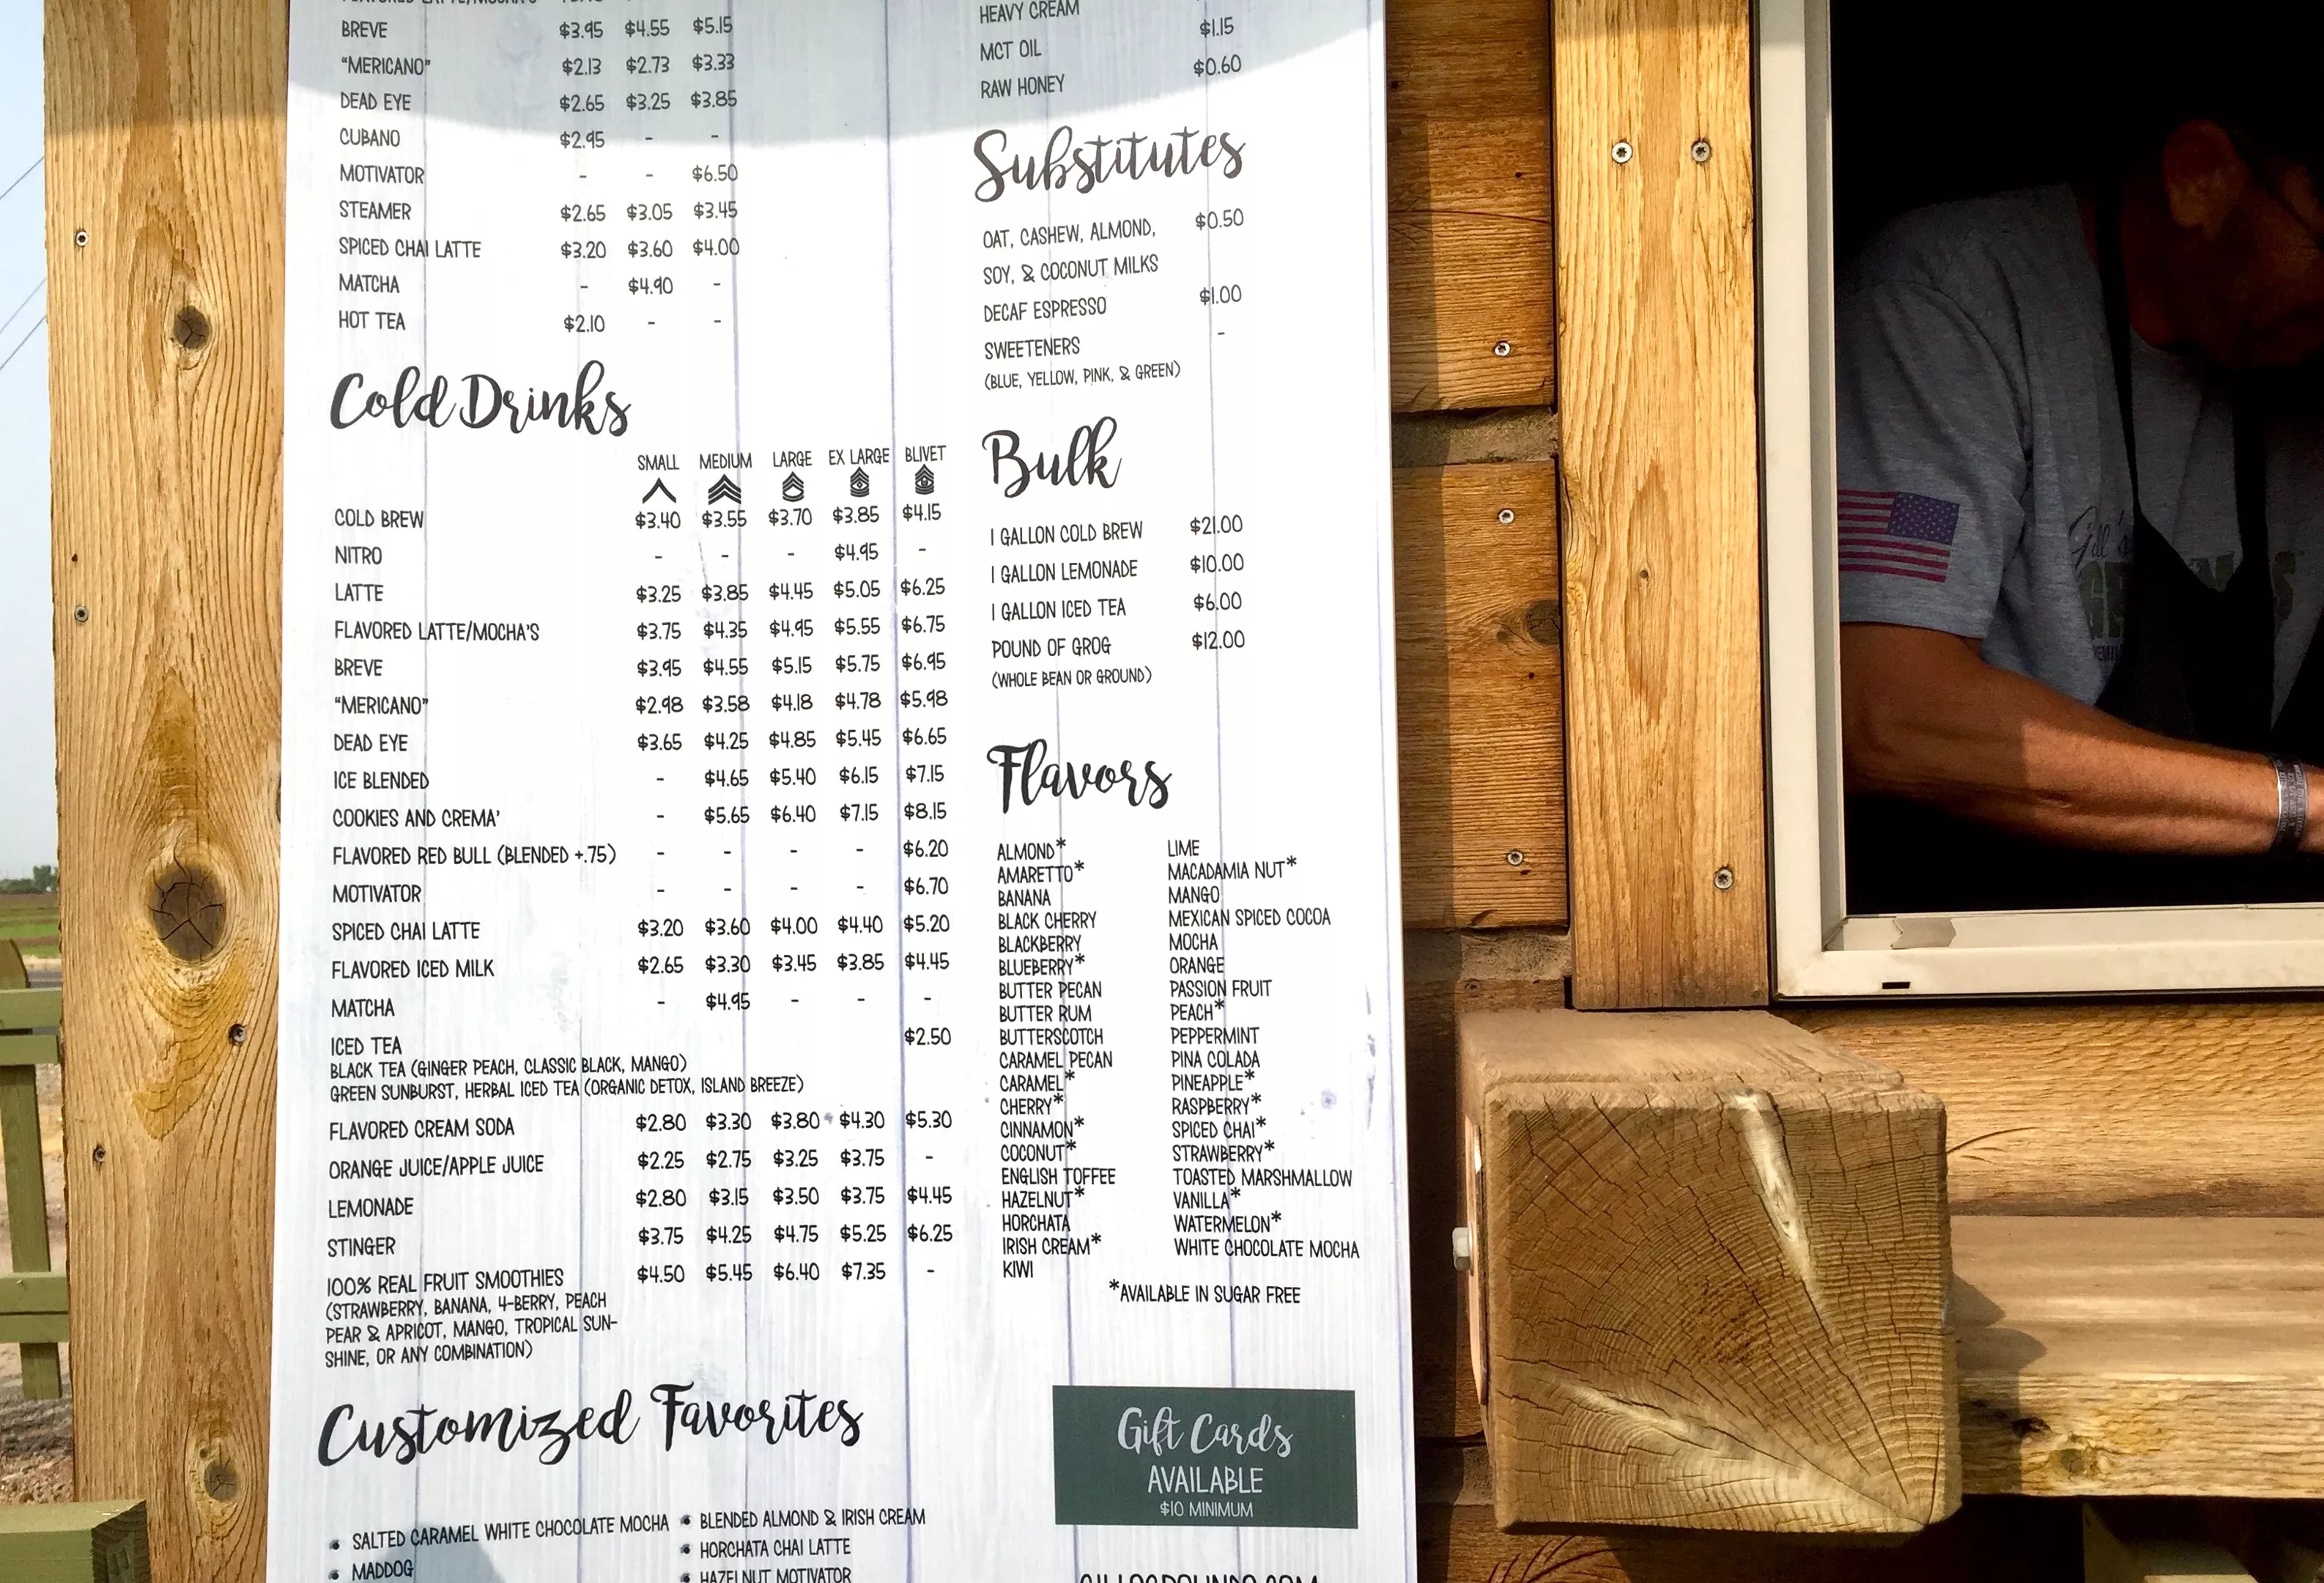 BREVE $3.95 $4.55 $5.15
"MERICANO" $2.13 $2.73 $3.33
DEAD EYE $2.65 $3.25 $3.85
CUBANO $2.95 - -
MOTIVATOR - - $6.50
STEAMER $2.65 $3.05 $3.45
SPICED CHAI LATTE $3.20 $3.60 $4.00
MATCHA - $4.90 -
HOT TEA $2.10 - -
Cold Drinks
SMALL MEDIUM LARGE EX LARGE BLIVET
COLD BREW $3.40 $3.55 $3.70 $3.85 $4.15
NITRO - - - $4.95 -
LATTE $3.25 $3.85 $4.45 $5.05 $6.25
FLAVORED LATTE/MOCHA'S $3.75 $4.35 $4.95 $5.55 $6.75
BREVE $3.95 $4.55 $5.15 $5.75 $6.95
"MERICANO" $2.98 $3.58 $4.18 $4.78 $5.98
DEAD EYE $3.65 $4.25 $4.85 $5.45 $6.65
ICE BLENDED - $4.65 $5.40 $6.15 $7.15
COOKIES AND CREMA' - $5.65 $6.40 $7.15 $8.15
FLAVORED RED BULL (BLENDED +.75) - - - - $6.20
MOTIVATOR - - - - $6.70
SPICED CHAI LATTE $3.20 $3.60 $4.00 $4.40 $5.20
FLAVORED ICED MILK $2.65 $3.30 $3.45 $3.85 $4.45
MATCHA - $4.95 - - -
ICED TEA $2.50
BLACK TEA (GINGER PEACH, CLASSIC BLACK, MANGO)
GREEN SUNBURST, HERBAL ICED TEA (ORGANIC DETOX, ISLAND BREEZE)
FLAVORED CREAM SODA $2.80 $3.30 $3.80 $4.30 $5.30
ORANGE JUICE/APPLE JUICE $2.25 $2.75 $3.25 $3.75 -
LEMONADE $2.80 $3.15 $3.50 $3.75 $4.45
STINGER $3.75 $4.25 $4.75 $5.25 $6.25
100% REAL FRUIT SMOOTHIES $4.50 $5.45 $6.40 $7.35 -
(STRAWBERRY, BANANA, 4-BERRY, PEACH
PEAR & APRICOT, MANGO, TROPICAL SUN-
SHINE, OR ANY COMBINATION)
Customized Favorites
• SALTED CARAMEL WHITE CHOCOLATE MOCHA
• MADDOG
• BLENDED ALMOND & IRISH CREAM
• HORCHATA CHAI LATTE
• HAZELNUT MOTIVATOR
HEAVY CREAM
MCT OIL $1.15
RAW HONEY $0.60
Substitutes
OAT, CASHEW, ALMOND, $0.50
SOY, & COCONUT MILKS
DECAF ESPRESSO $1.00
SWEETENERS -
(BLUE, YELLOW, PINK, & GREEN)
Bulk
1 GALLON COLD BREW $21.00
1 GALLON LEMONADE $10.00
1 GALLON ICED TEA $6.00
POUND OF GROG $12.00
(WHOLE BEAN OR GROUND)
Flavors
ALMOND*
AMARETTO*
BANANA
BLACK CHERRY
BLACKBERRY
BLUEBERRY*
BUTTER PECAN
BUTTER RUM
BUTTERSCOTCH
CARAMEL PECAN
CARAMEL*
CHERRY*
CINNAMON*
COCONUT*
ENGLISH TOFFEE
HAZELNUT*
HORCHATA
IRISH CREAM*
KIWI
LIME
MACADAMIA NUT*
MANGO
MEXICAN SPICED COCOA
MOCHA
ORANGE
PASSION FRUIT
PEACH*
PEPPERMINT
PINA COLADA
PINEAPPLE*
RASPBERRY*
SPICED CHAI*
STRAWBERRY*
TOASTED MARSHMALLOW
VANILLA*
WATERMELON*
WHITE CHOCOLATE MOCHA
*AVAILABLE IN SUGAR FREE
Gift Cards
AVAILABLE
$10 MINIMUM
Gill's